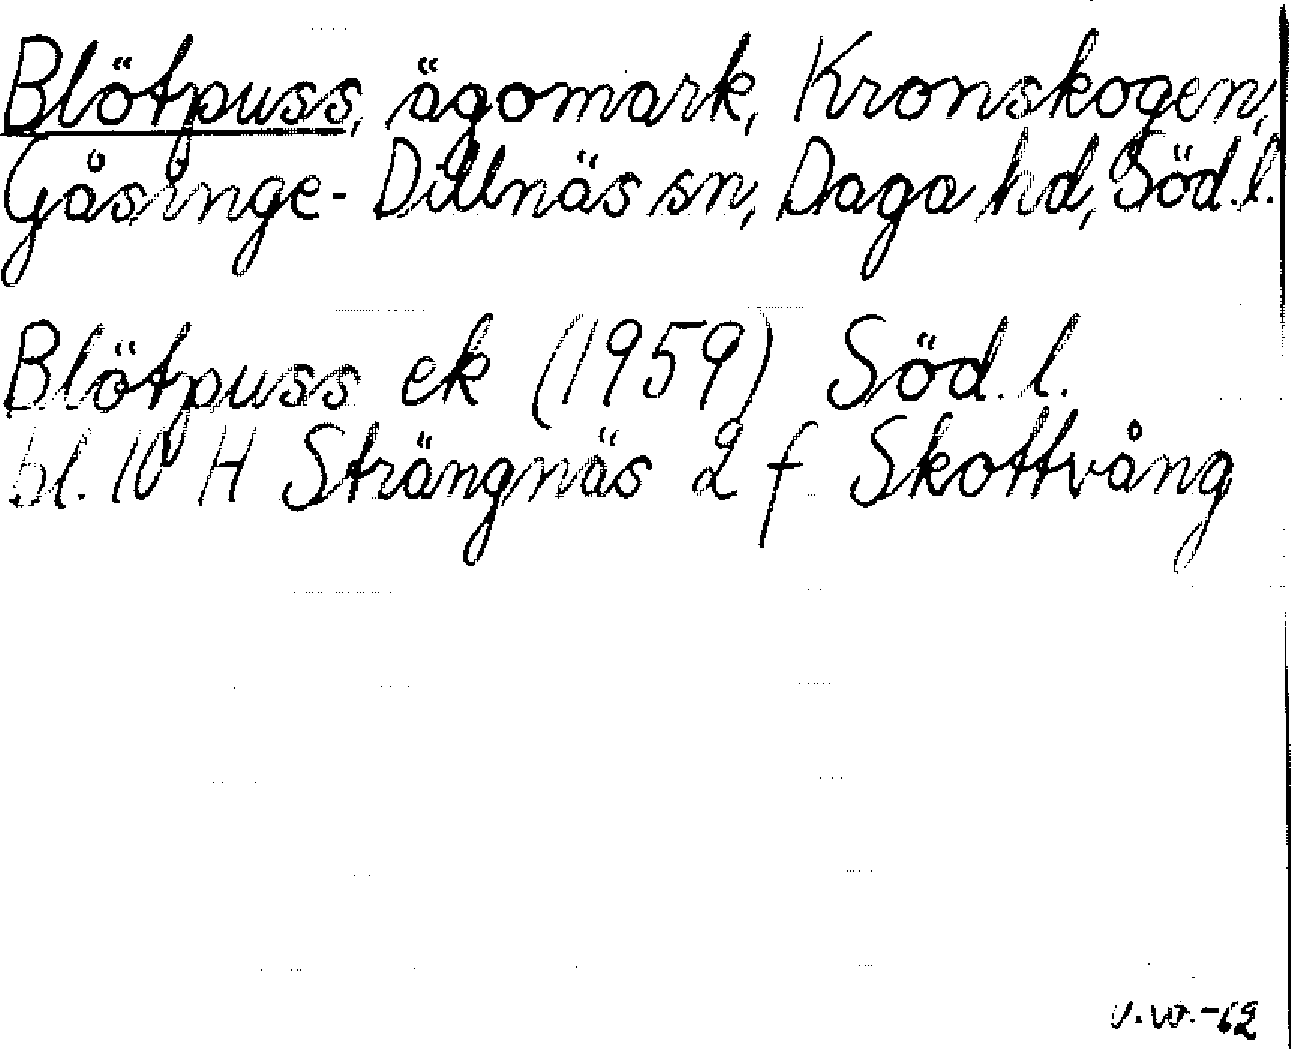 Blötpuss, ägomark, Kronskogen,
Gåsinge-Dillnäs sn, Daga hd, Söd.l.
Blötpuss ek (1959) Söd.l.
bl. 10 H Strängnäs 2 f Skottvång